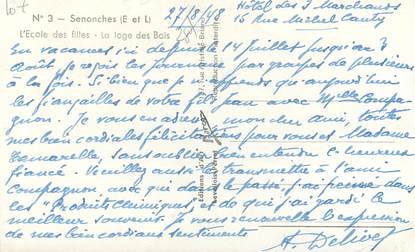 lot
N° 3 - Senonches (E et L)
L'Ecole des filles - La loge des Bois
27/8/48
Hôtel des 3 Marchands
15 Rue Michel Cauty
En vacances ici depuis le 14 Juillet jusqu'au 3
Août, je reçois les journaux par groupes de plusieurs
à la fois. Si bien que je n'apprends qu'aujourd'hui
les fiançailles de votre fils avec Mlle Compa-
gnon. Je vous en adresse mon cher ami, toutes
mes bien cordiales félicitations pour vous et Madame
sans oublier, bien entendu l'heureux
fiancé. Veuillez aussi les transmettre à l'ami
Compagnon, avec qui dans le passé, j'ai
les "Produits Chimiques", et de qui j'ai gardé le
meilleur souvenir. Je vous renouvelle l'expression
de mes bien cordiaux sentiments